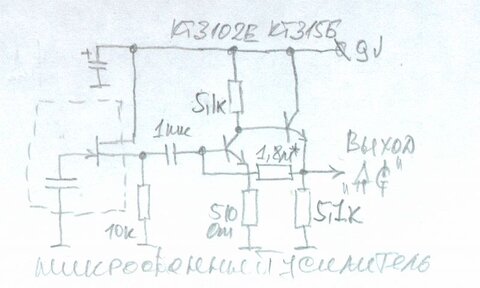 КТ3102Е КТ315Б
+
9V
5,1к
1мк
1,8м*
ВЫХОД
"ДС"
10к
510
Ом
5,1к
МИКРОФОННЫЙ УСИЛИТЕЛЬ